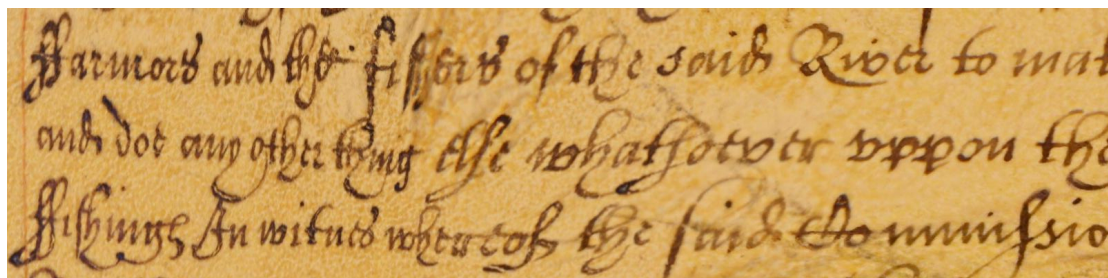 ffarmors and the fishers of the said River to mak
and doe any other thing else whatsoever vppon the
ffishings In witnes whereof the said Commissio